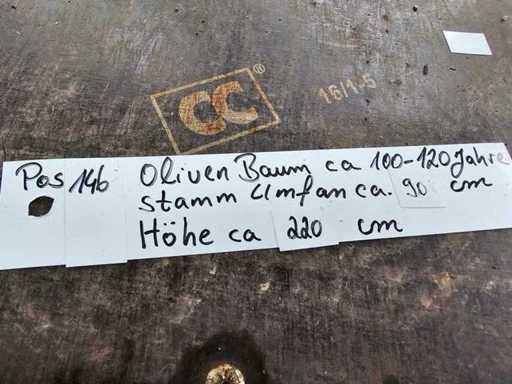 CC®
16/1-5
Pos 146 Oliven Baum ca 100-120 Jahre
stamm Umfan ca. 90 cm
Höhe ca 220 cm